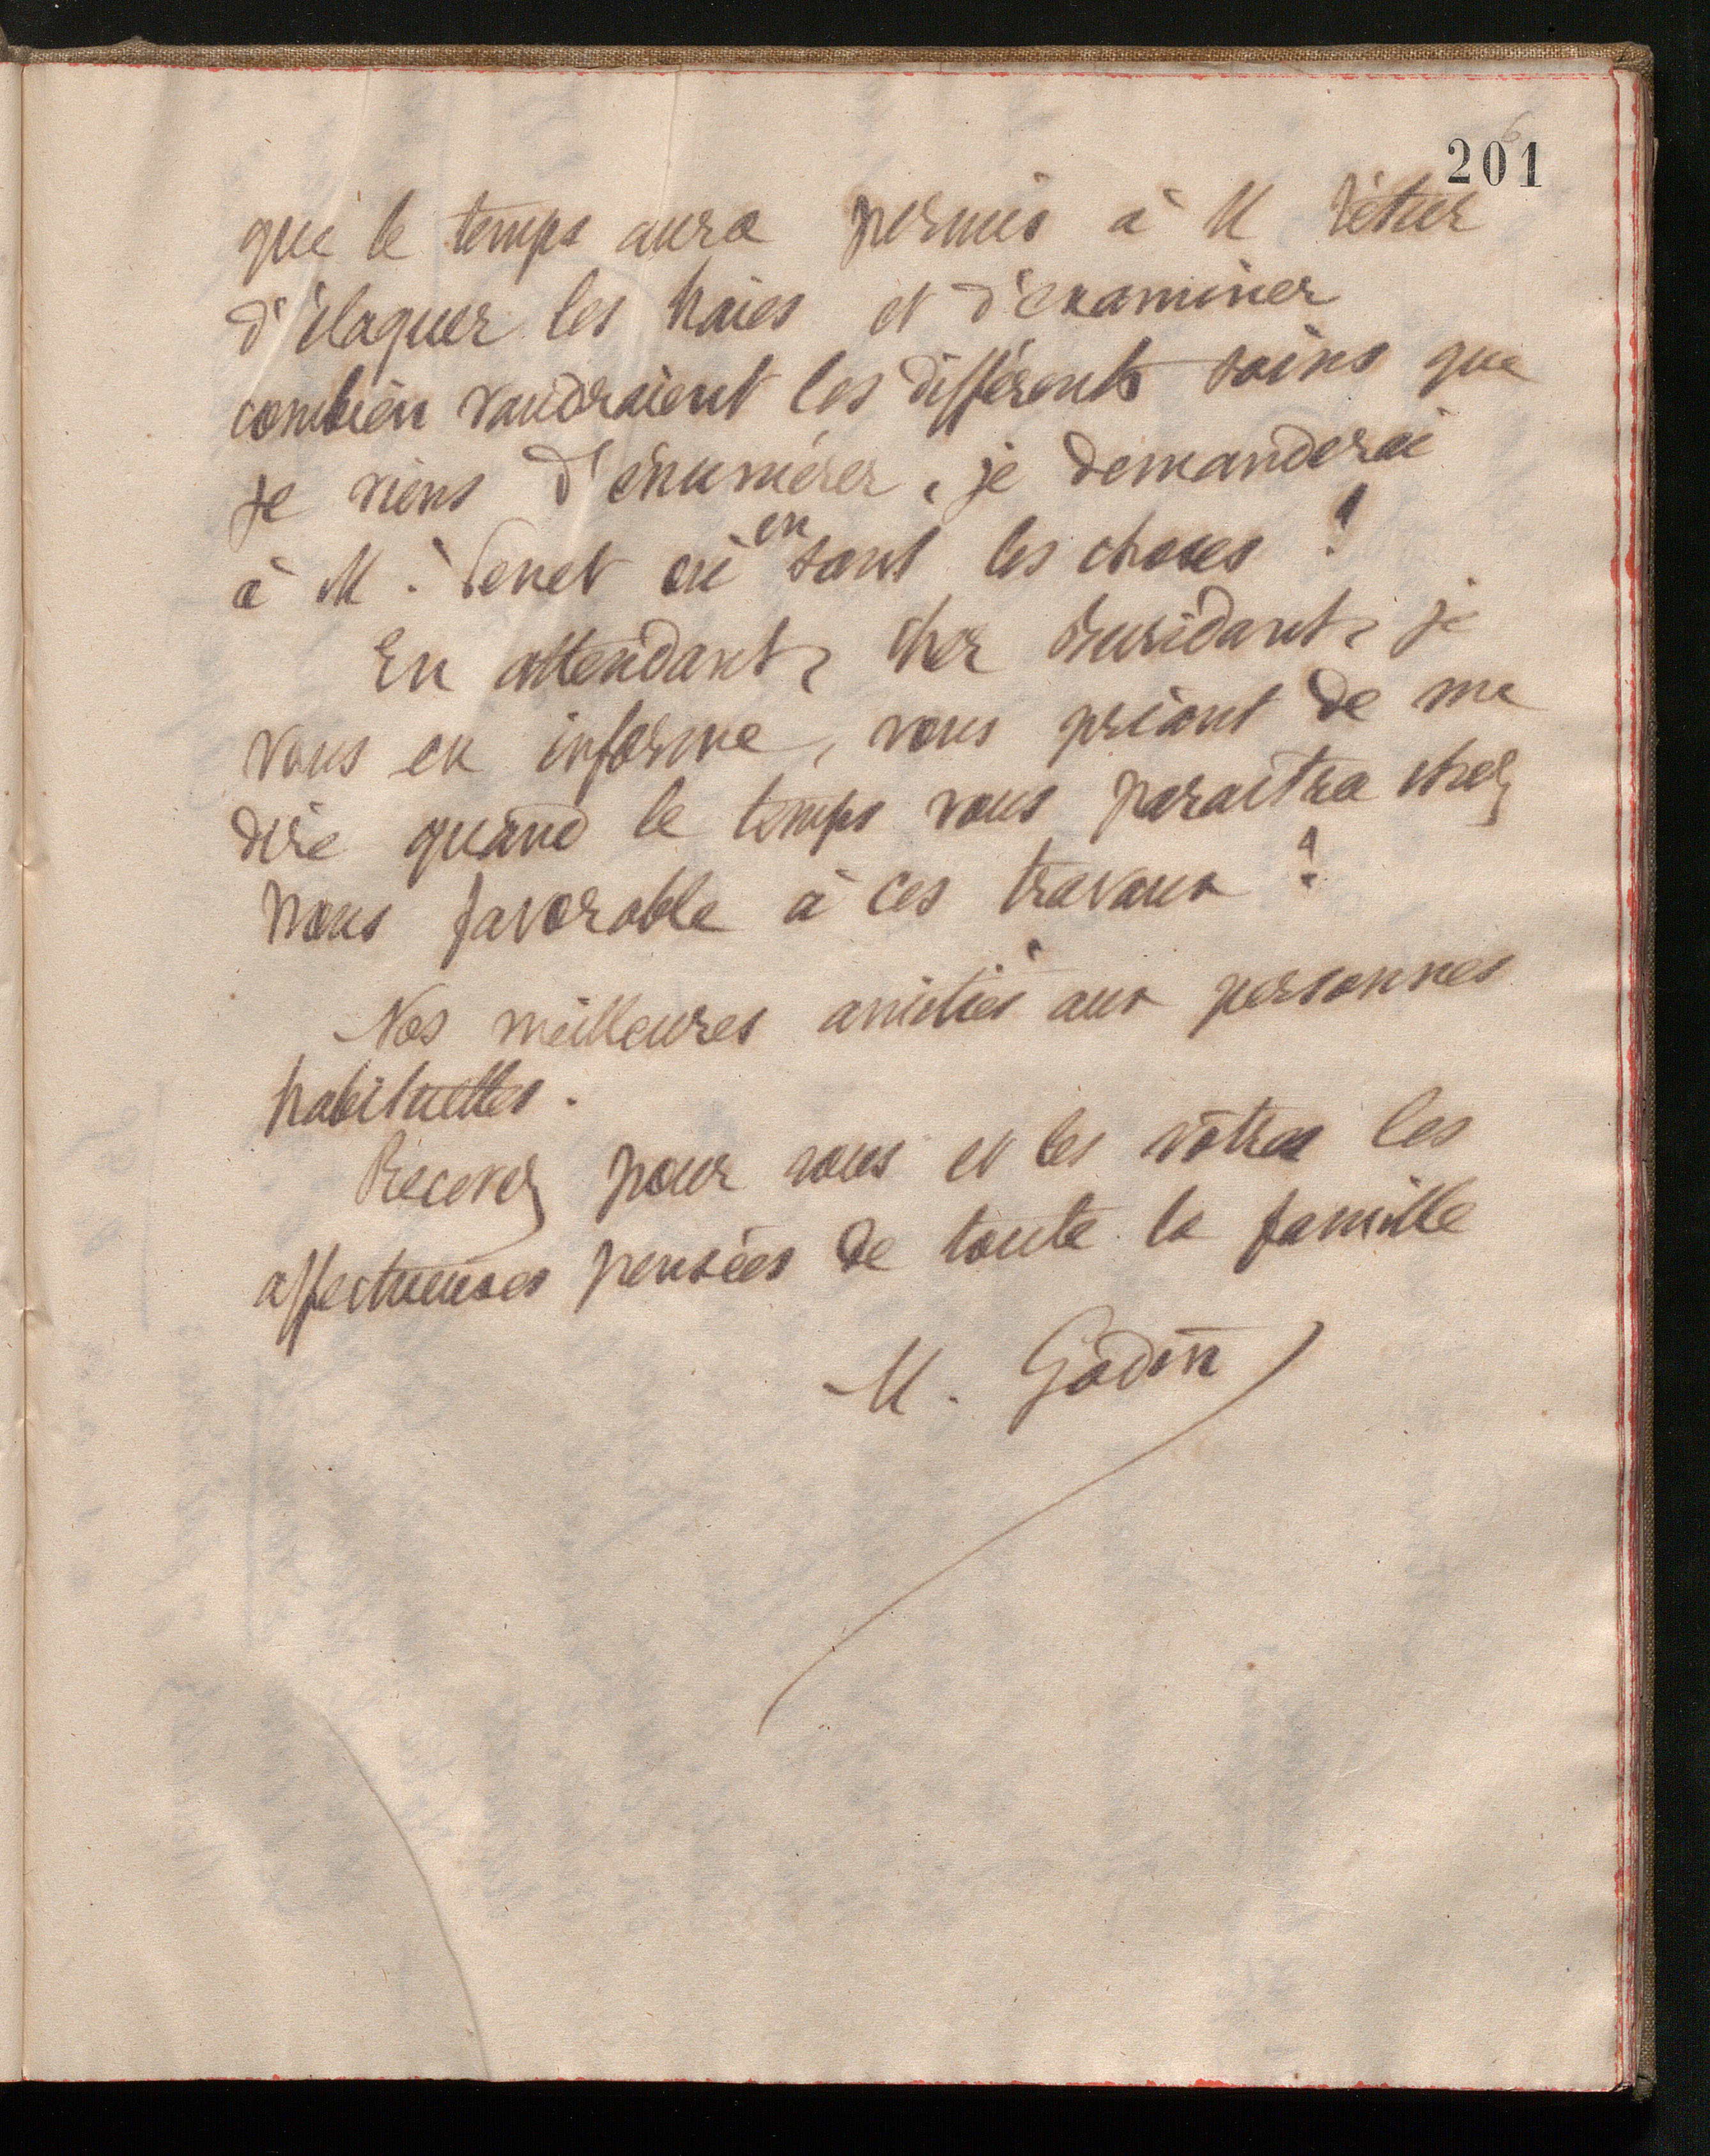 201
que le temps aura permis à M
d'élaguer les haies et d'examiner
combien vaudraient les différents soins que
je viens d'énumérer, je demanderai
à M. où en sont les choses ?
En attendant, cher Buridant, je
vous en informe, vous priant de me
dire quand le temps vous paraîtra chez
nous favorable à ces travaux ?
Nos meilleures amitiés aux personnes
habituelles.
Recevez pour vous et les vôtres les
affectueuses pensées de toute la famille
M. Godin